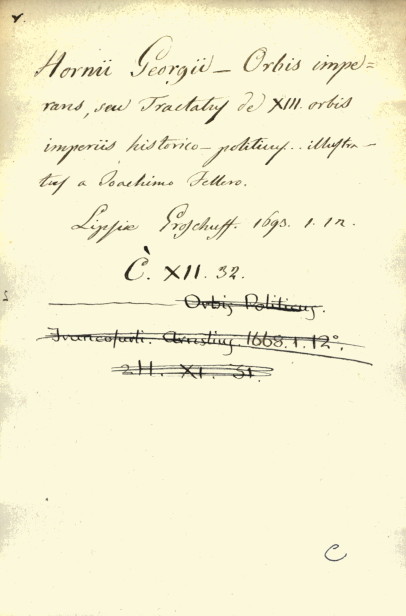 Hornii Georgii — Orbis impe=
rans, seu Tractatus de XIII. orbis
imperiis historico-politicus.. illustra-
tus a Joachimo Fellero.
Lipsiæ Groschuff. 1693. 1. 12.
C. XII. 32.
Orbis Politicus.
Francofurti. 1668. 1. 12º.
H. XI. 31.
C